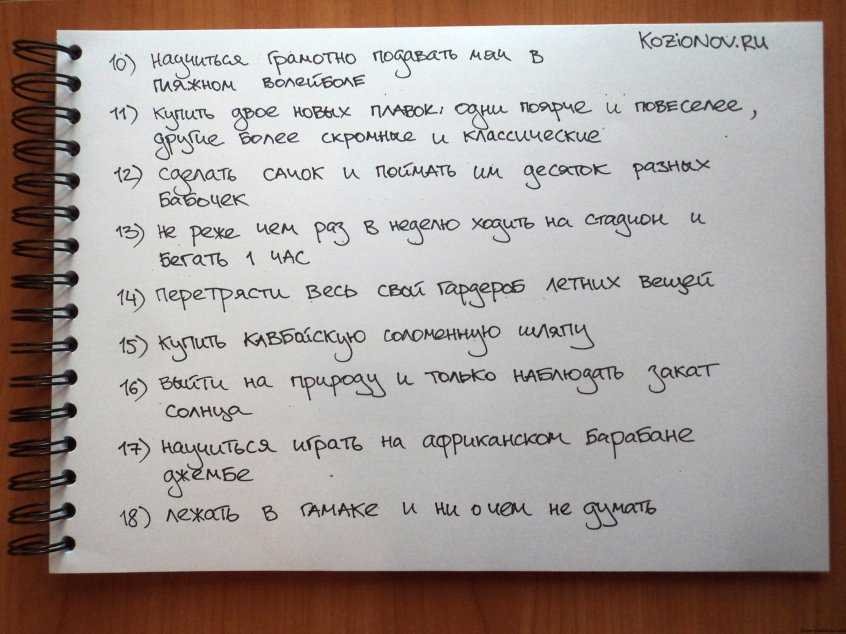 KOZIONOV.RU
10) научиться грамотно подавать мяч в
пляжном волейболе
11) купить двое новых плавок: одни поярче и повеселее,
другие более скромные и классические
12) сделать сачок и поймать им десяток разных
бабочек
13) не реже чем раз в неделю ходить на стадион и
бегать 1 час
14) перетрясти весь свой гардероб летних вещей
15) купить кавбойскую соломенную шляпу
16) выйти на природу и только наблюдать закат
солнца
17) научиться играть на африканском барабане
джембе
18) лежать в гамаке и ни о чем не думать